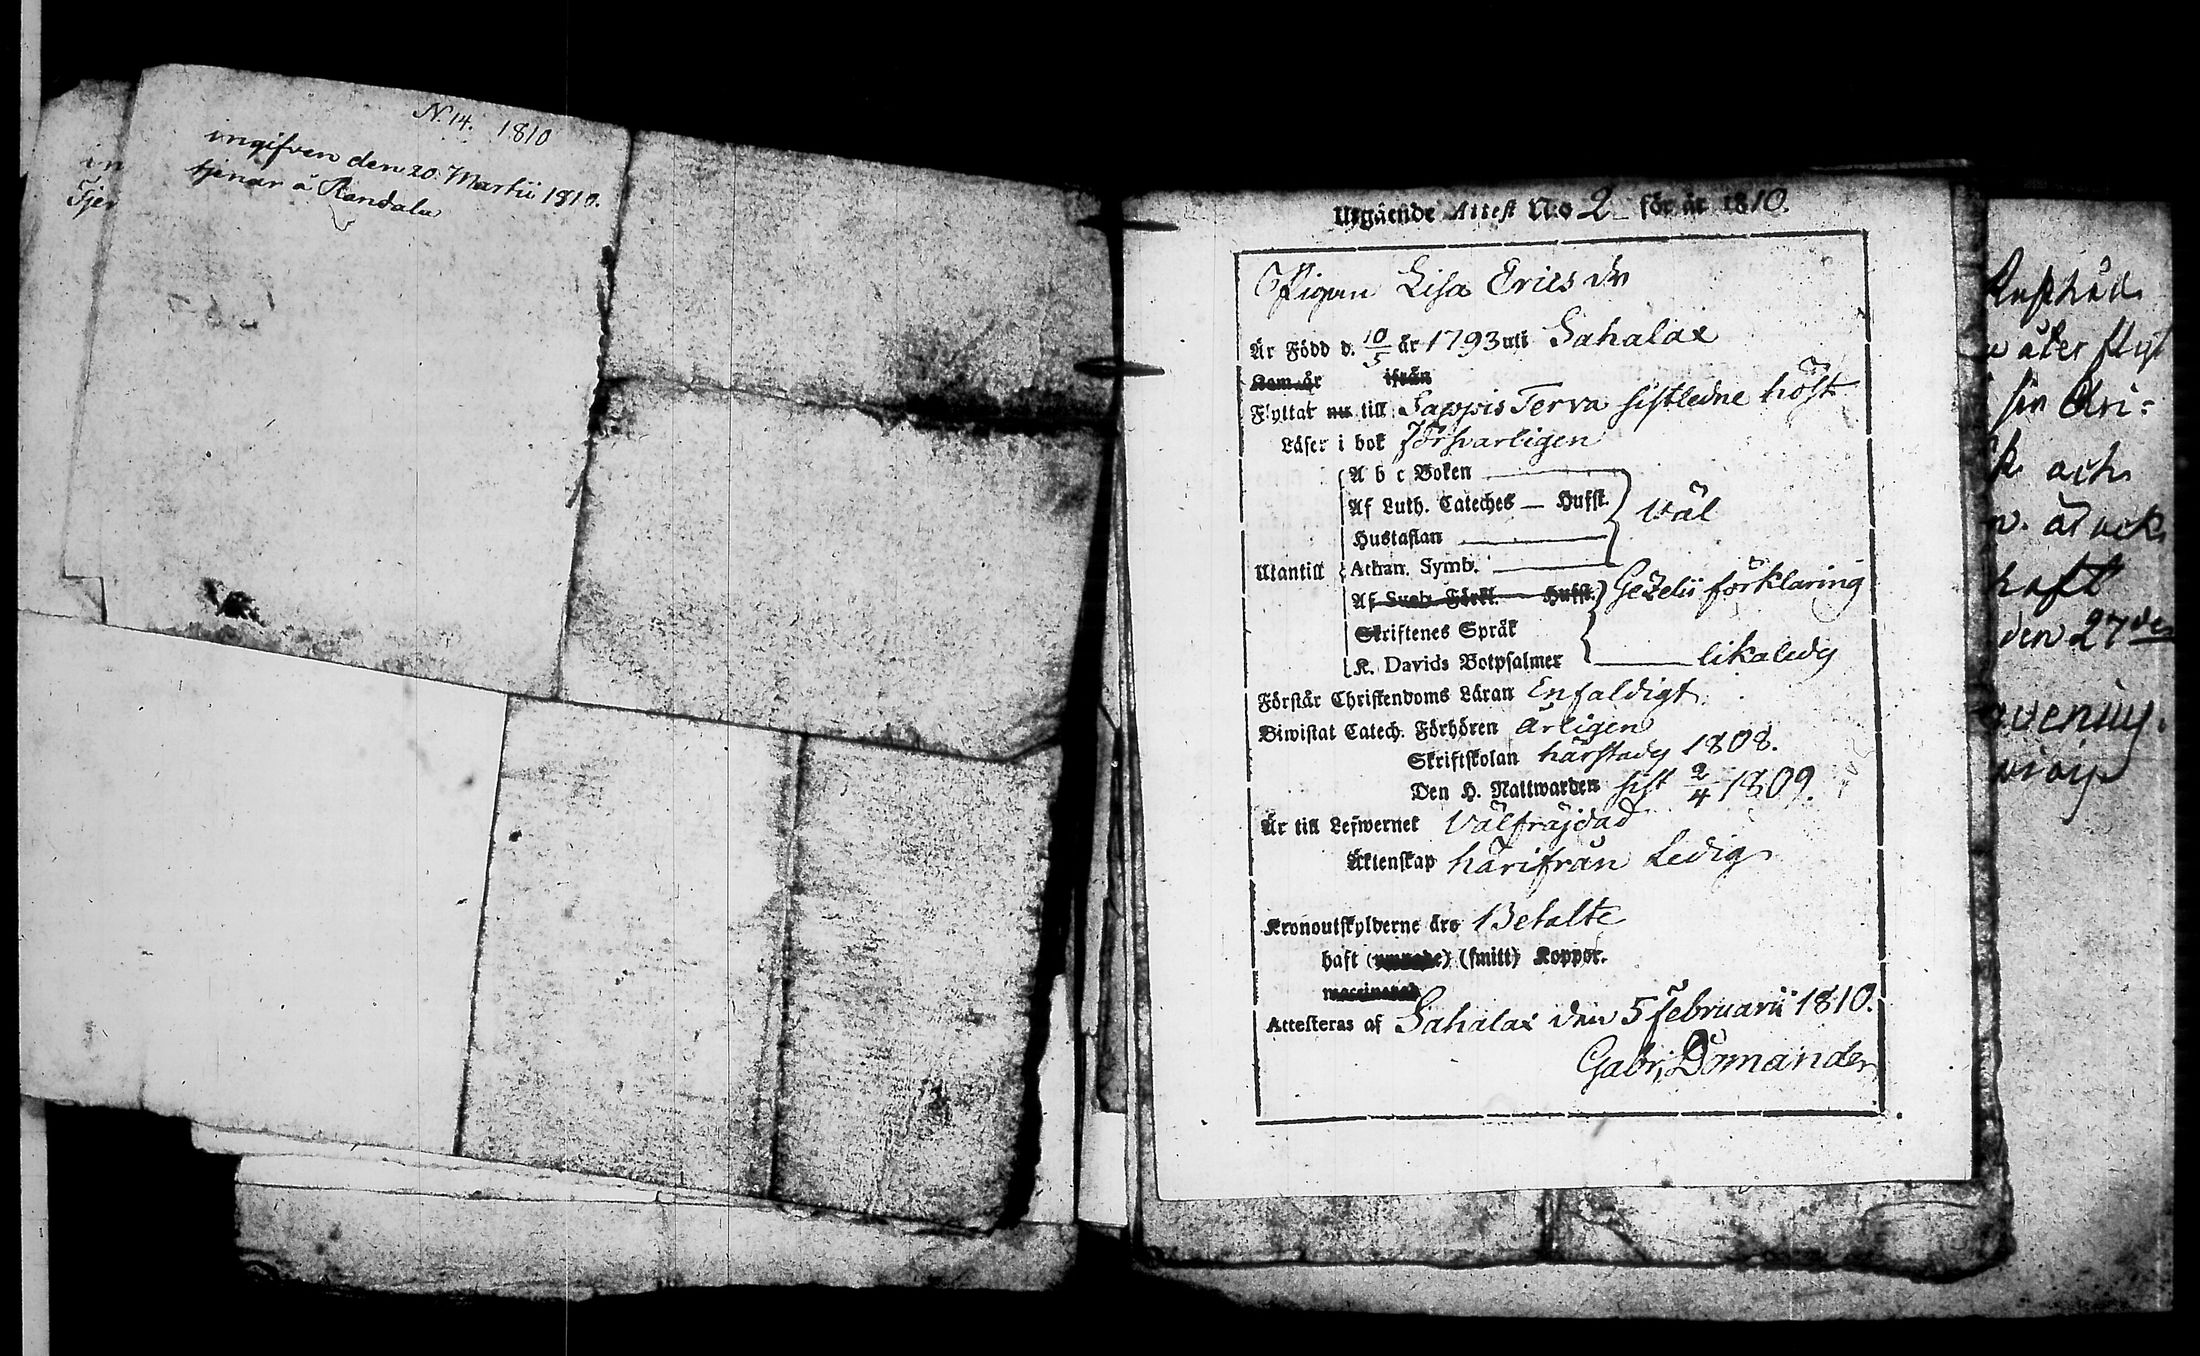 N. 14. 1810
ingifven den 20 Martii 1810.
tjenar å Randala
in
Tjen
Utgående Attest N:o 2 för år 1810.
Pigan Lisa Ericsdr
Är Född d. 10/5 år 1793 uti Sahalax
Kom år ifrån
Flyttar nu till Sappis Terva sistledne höst
Läser i bok försvarligen
A b c Boken
Af Luth. Cateches — Hufst.
Hustaflan
väl
Utantill Athan. Symb.
Af Sveb. Förkl. — Hufst. Gezelii förklaring
Skriftenes Språk
K. Davids Botpsalmer likaledes
Förstår Christendoms Läran Enfaldigt
Biwistat Catech. Förhören årligen
Skriftskolan härstädes 1808.
Den H. Nattwarden sist 2/4 1809.
Är till Lefwernet Välfräjdad
Äktenskap härifrån Ledig
Kronoutskylderne äro Betalte
haft (smitt) Koppor.
Attesteras af Sahalax den 5 Februarii 1810.
Gabr. Domander
åter
sin
och
haft
den 27de